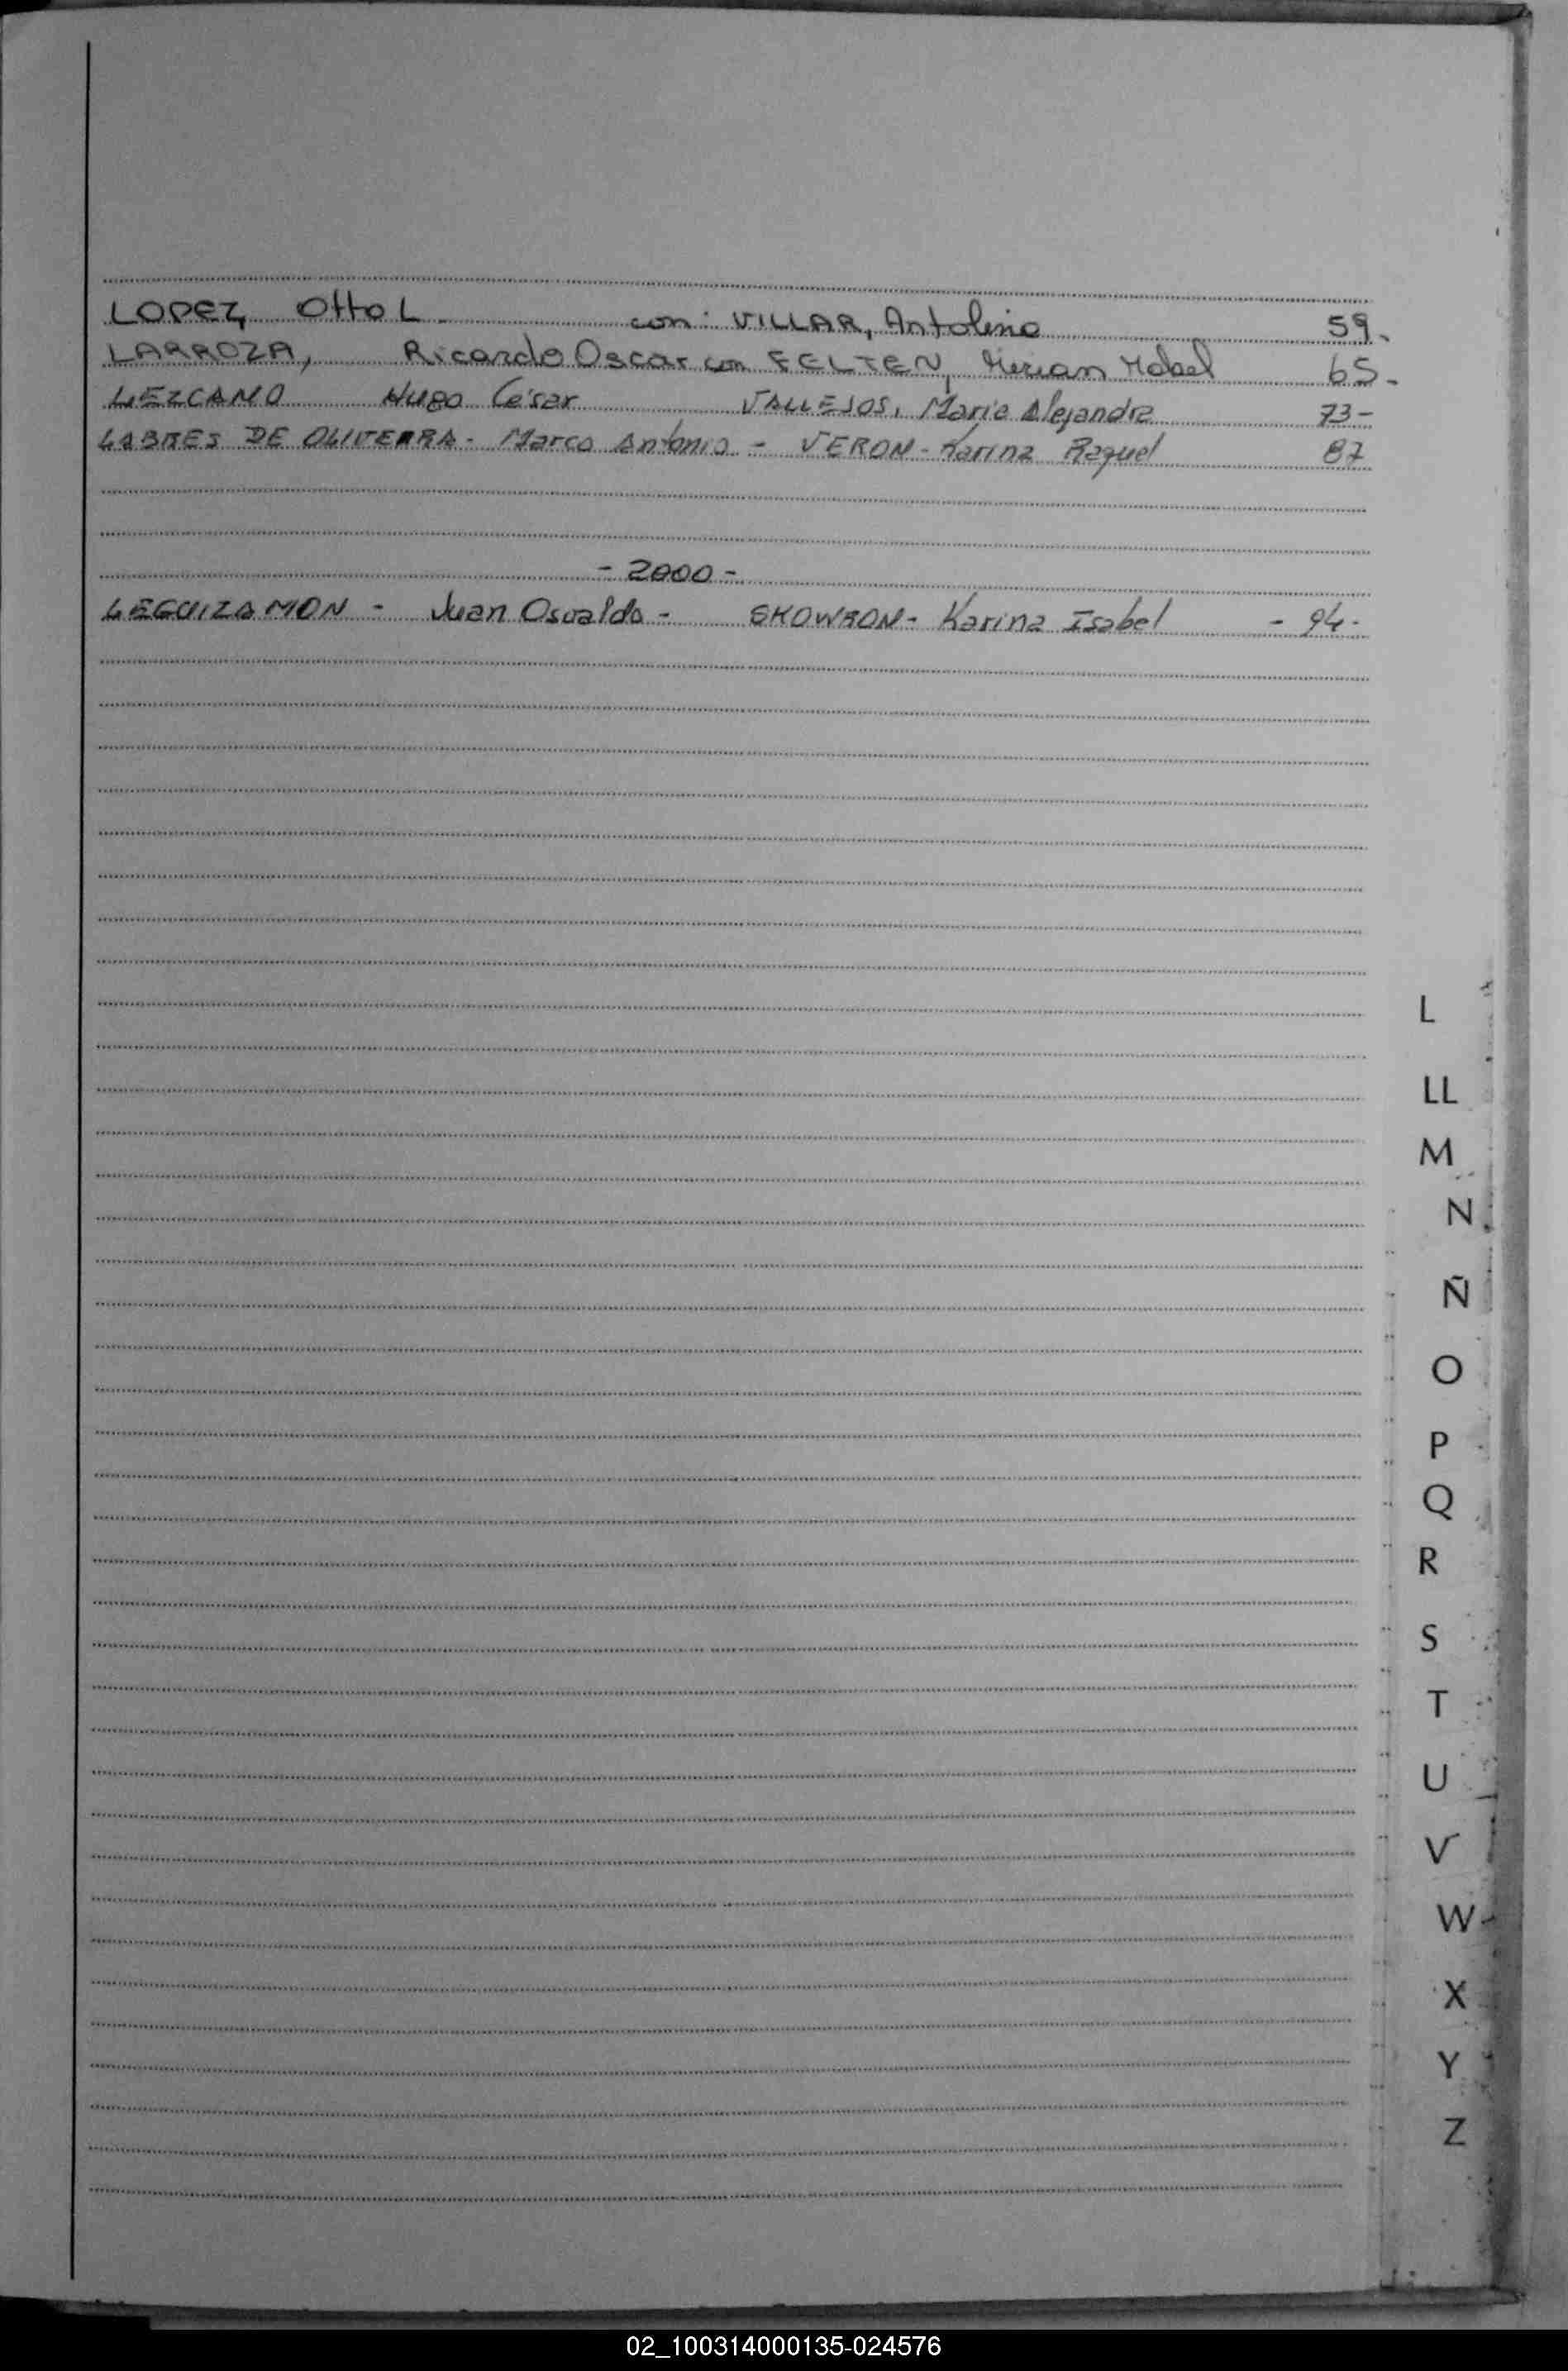 LOPEZ, Otto L. con: VILLAR, Antolina 59.
LARROZA, Ricardo Oscar con FELTEN, Mirian Mabel 65.
LEZCANO Hugo César VALLEJOS, María Alejandra 73-
DE Marco Antonio - VERON - Karina Raquel 87
- 2000 -
LEGUIZAMON - Juan Osvaldo - SKOWRON - Karina Isabel - 94-
L
LL
M
N
Ñ
O
P
Q
R
S
T
U
V
W
X
Y
Z
02_100314000135-024576